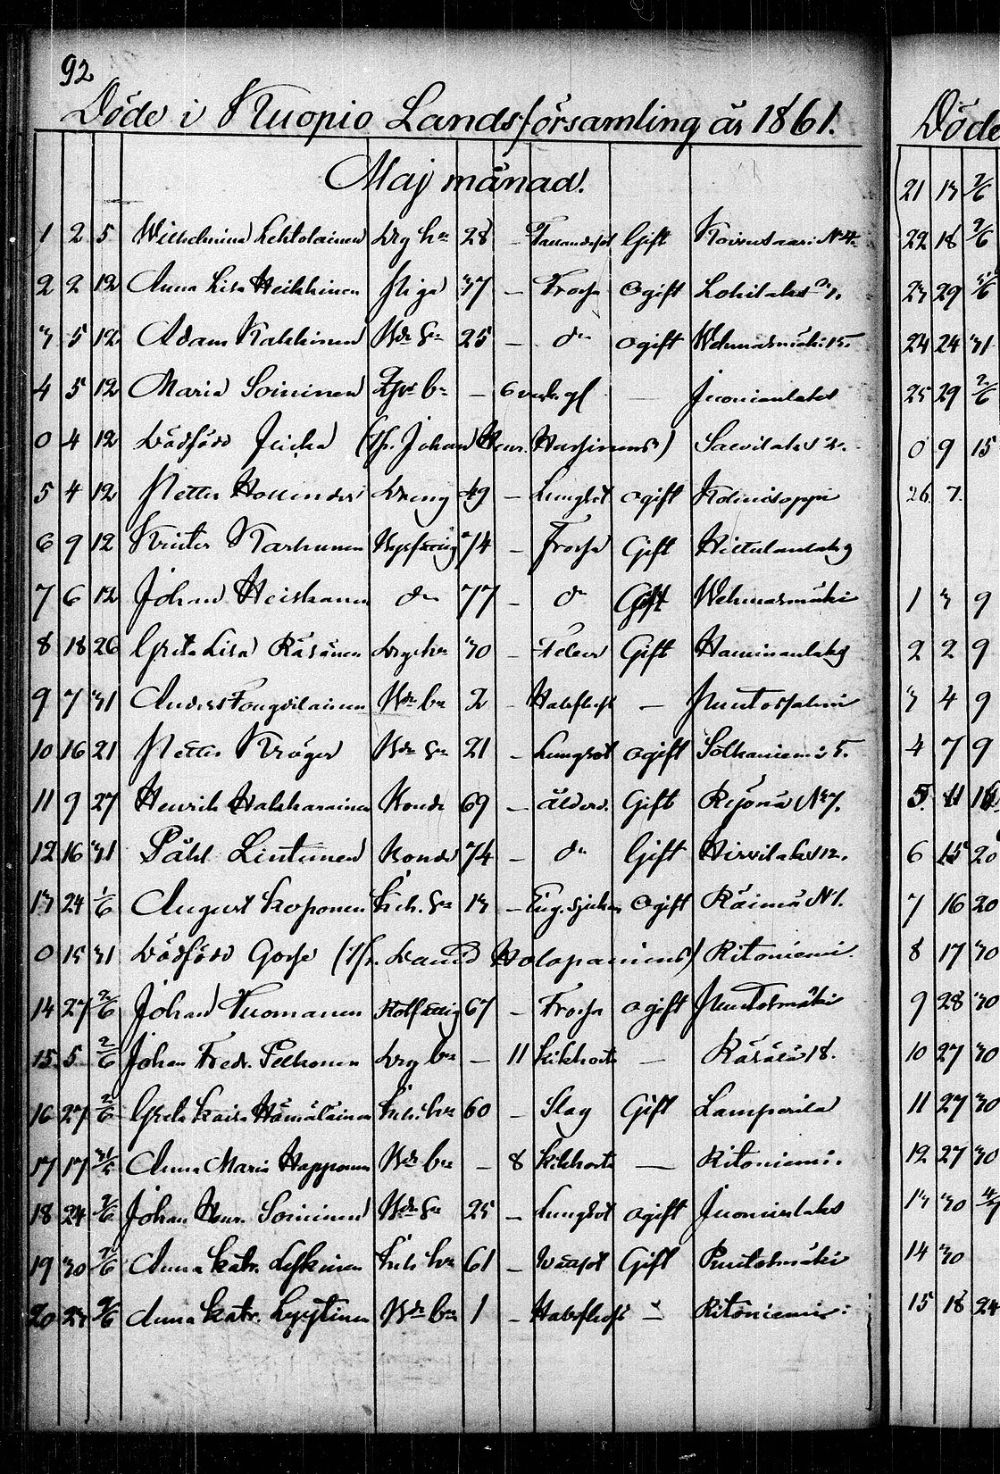 92
Döde i Kuopio Landsförsamling år 1861.
Maj månad.
1 2 5 Wilhelmina Lehtolainen Drg hu 28 - Gift Koivusaari N 4.
2 2 12 Anna Lisa Heikkinen Piga 37 - Frossa Ogift Lohilaks
3 5 12 Adam Kakkinen Bde Sn 25 - do ogift Wehmasmäki 15.
4 5 12 Maria Soininen bn - 6 veck. gl Juonionlaks
0 4 12 Dödfödd Flicka (Sp. Johan Henr. ) Savilaks
5 4 12 Petter Hollender Dreng 49 - Lungsot ogift Kolmisoppi
6 9 12 Krister Karhunen 74 - Frossa Gift Hiltulanlaks
7 6 12 Johan Heiskanen do 77 - do Gift Wehmasmäki
8 18 26 Greta Lisa Räsänen Drg hu 30 - Feber Gift Haminanlaks
9 7 31 Anders Tougvilainen Bde bn 2 - Halsfluss — Puutossalmi
10 16 21 Petter Kröger Bde Sn 21 - Lungsot ogift Solkaniemi 5.
11 9 27 Henrik Hakkarainen Bonde 69 - ålderd. Gift Reijona N 7.
12 16 31 Påhl Lintunen Bonde 74 - do Gift Hirvilaks 12.
13 24 1/6 August Koponen Inh. Sn 13 - Ogift Räimä N 1.
0 15 31 Dödfödd Gosse (Sp. David Holopainens) Ritoniemi.
14 27 2/6 Johan Tuomainen 67 - Frossa ogift Puutosmäki
15 5 2/6 Johan Fredr. Pelkonen Drg bn - 11 Kikhosta — Räsälä 18.
16 27 2/6 Greta Kaisa Hämäläinen Inhs hu 60 - Slag Gift Lamperila
17 17 31/5 Anna Maria Happonen Bde bn - 8 Kikhosta — Ritoniemi.
18 24 2/6 Johan Henr. Soininen Bde Sn 25 - Lungsot ogift Juonionlaks
19 30 2/6 Anna Katr. Leskinen Inhs hu 61 - Gift Puutosmäki
20 23 2/6 Anna Katr. Lyytinen Bde bn 1 - Halsfluss — Ritoniemi
Döde
21 13 2/6
22 18 2/6
23 29
24 24 31
25 29 2/6
0 9 15
26 7
1 3 9
2 2 9
3 4 9
4 7 9
5 11
6 15 20
7 16 20
8 17 30
9 28 30
10 27 30
11 27 30
12 27 30
13 30
14 30
15 18 24